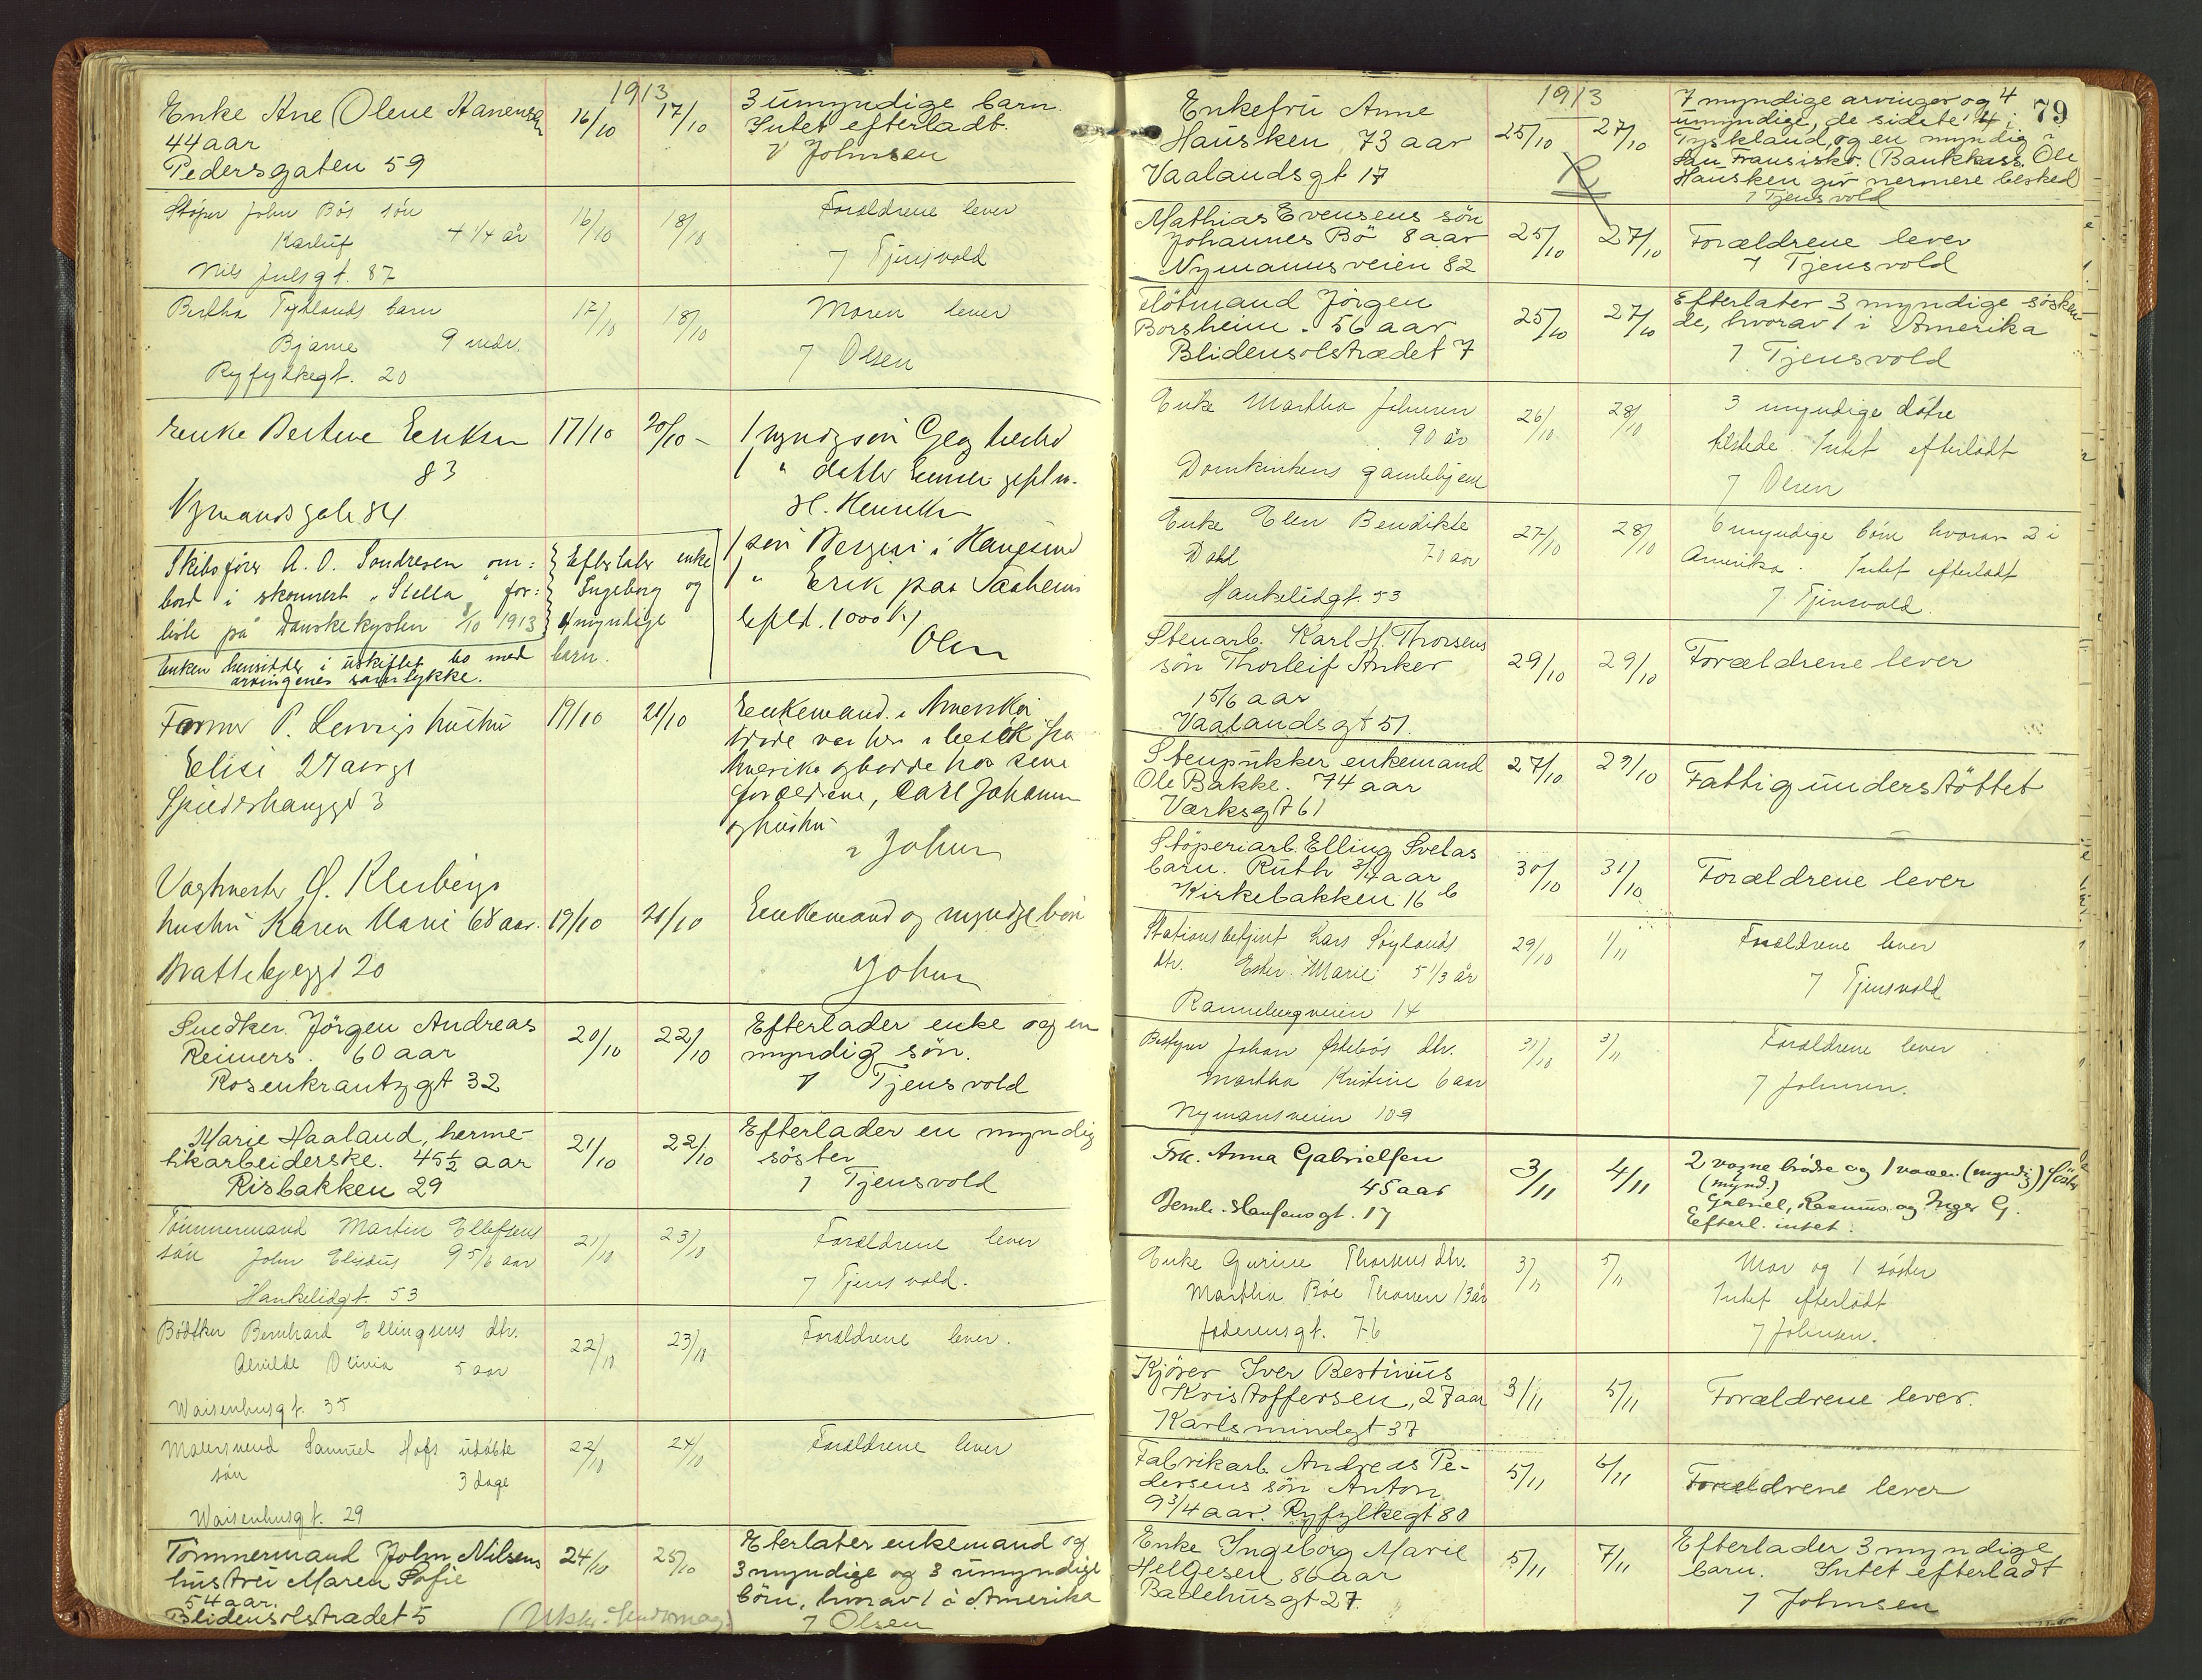 1913
Enke Ane Oline Hanensen
44 aar
Pedersgaten 59
16/10
17/10
3 umyndige barn.
Intet efterladt.
7 Johnsen
Stöper John Bös sön
Karluf 4 1/4 år
Nils Julsgt. 87
16/10
18/10
Forældrene lever
7 Tjensvold
Bertha Tydlands barn
Bjarne 9 mdr.
Ryfylkegt. 20
17/10
18/10
Moren lever
7 Olsen
Enke Bertine Eriksen
83
Nymandsgate 84
17/10
20/10
1 " datter
H. Henriksen
1 sön i Haugesund
1 " Erik paa
1000 kr
Olsen
Skibsförer A. O. Sondresen om=
bord i skonnert "Stella" for=
liste på Danskekysten 8/10 1913
Efterlater enke
Ingeborg og
4 myndige
barn.
Enken hensidder i uskiftet bo med
arvingenes samtykke.
Farmer P. hustru
Elise 27 aar
19/10
21/10
Enkemand i Amerika
Amerika og bodde hos sine
forældrene, Carl Johannes
og hustru
7 Johnsen
hustru Karen Marie 68 aar.
Brattebjeggt 20
19/10
21/10
Enkemand og myndige børn
Johnsen
Snedker. Jörgen Andreas
Reimers. 60 aar
Rosenkrantzgt 32
20/10
22/10
Efterlader enke og en
myndig sön.
7 Tjensvold
Marie Haaland, herme-
tikarbeiderske. 45½ aar
Risbakken 29
21/10
22/10
Efterlader en myndig
söster
7 Tjensvold
Tömmermand Martin Ellefsens
sön John Elisæus 9 5/6 aar
Hankelidgt. 53
21/10
23/10
Forældrene lever
7 Tjensvold.
Bödtker Bernhard Ellingsens dtr.
Alvilde Olivia 5 aar
Waisenhusgt. 35
22/10
23/10
Forældrene lever.
Malersvend Samuel Hofs udöbte
sön 3 dage
Waisenhusgt. 29
22/10
24/10
Forældrene lever
Tömmermand John Nilsens
hustru Maren Sofie
54 aar.
Blidensolstrædet 5
24/10
25/10
Eterlater enkemand og
3 myndige og 3 umyndige
börn, hvorav 1 i Amerika
7 Olsen
79
1913
Enkefru Anne
Hausken 73 aar
Vaalandsgt 17
25/10
27/10
R
7 myndige arvinger og 4
umyndige, de sidste 4 i
Tyskland, og en myndig i
San Fransisko. (Bankkass. Ole
Hausken gir nermere besked
7 Tjensvold
Mathias Evensens sön
Johannes Bö 8 aar
Nymannsveien 82
25/10
27/10
Forældrene lever
7 Tjensvold
Flötmand Jörgen
Borsheim. 56 aar
Blidensolstrædet 7
25/10
27/10
Efterlater 3 myndige sösken-
de, hvorav 1 i Amerika
7 Tjensvold
Enke Martha Johnsen
90 år
Domkirkens gamlehjem
26/10
28/10
3 myndige dötre
tilstede. Intet efterladt
7 Olsen
Enke Elen Bendikte
Dahl 70 aar
Hankelidgt. 53
27/10
28/10
6 myndige börn hvorav 2 i
Amerika. Intet efterladt
7 Tjensvold.
Stenarb. Karl H. Thorsens
sön Thorleif Anker
15/6 aar
Vaalandsgt 51.
29/10
29/10
Forældrene lever
Stenpukker enkemand
Ole Bakke. 74 aar
Værksgt 61
27/10
29/10
Fattigunderstöttet
Stöperiarb. Elling Svelas
barn. Ruth 3/4 aar
Kirkebakken 16 b
30/10
31/10
Forældrene lever
Stationsbetjent Lars Söylands
dtr. Ester Marie 5 1/3 år
Rannebergveien 14
29/10
1/11
Forældrene lever
7 Tjensvold
Bestyrer Johan Østebös dtr.
Martha Kristine 6 aar
Nymansveien 109
31/10
3/11
Forældrene lever
7 Johnsen.
Frk. Anna Gabrielsen
45 aar
Bernh. Hansensgt. 17
3/11
4/11
2 voxne brødre og 1 voxen (myndig) söster
(mynd.)
Gabriel, Rasmus og Inger G.
Efterl. intet.
Enke Gurine Thorsens dtr.
Martha Böe Thorsen 13 år
Jæderensgt. 76
3/11
5/11
Mor og 1 söster
Intet efterladt
7 Johnsen.
Kjörer Iver Bertinius
Kristoffersen, 27 aar
Karlsmindegt 37
3/11
5/11
Forældrene lever.
Fabrikarb. Andreas Pe-
dersens sön Anton
9 3/4 aar. Ryfylkegt 80
5/11
6/11
Forældrene lever
Enke Ingeborg Marie
Helgesen 86 aar
Badehusgt 27
5/11
7/11
Efterlader 3 myndige
barn. Intet efterladt
7 Johnsen